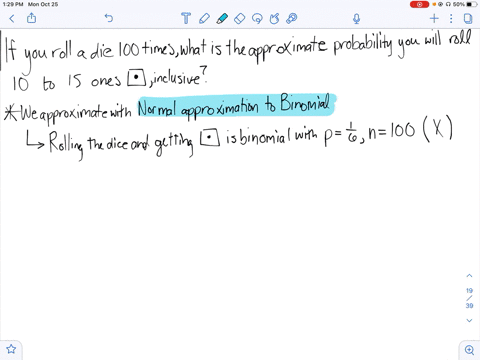 1:29 PM Mon Oct 25
50%
If you roll a die 100 times, what is the approximate probability you will roll
10 to 15 ones, inclusive?
* We approximate with Normal approximation to Binomial
↳ Rolling the dice and getting is binomial with p = 1/6, n = 100 (X)
19
/
39